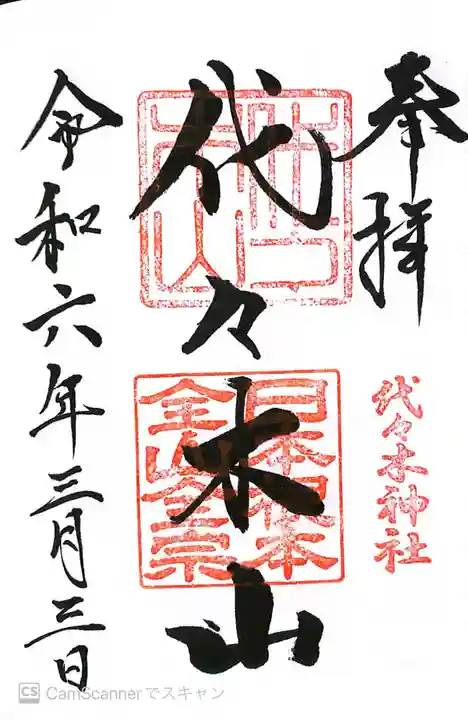 奉拝
代々木神社
代々木山
令和六年三月三日
CS CamScannerでスキャン